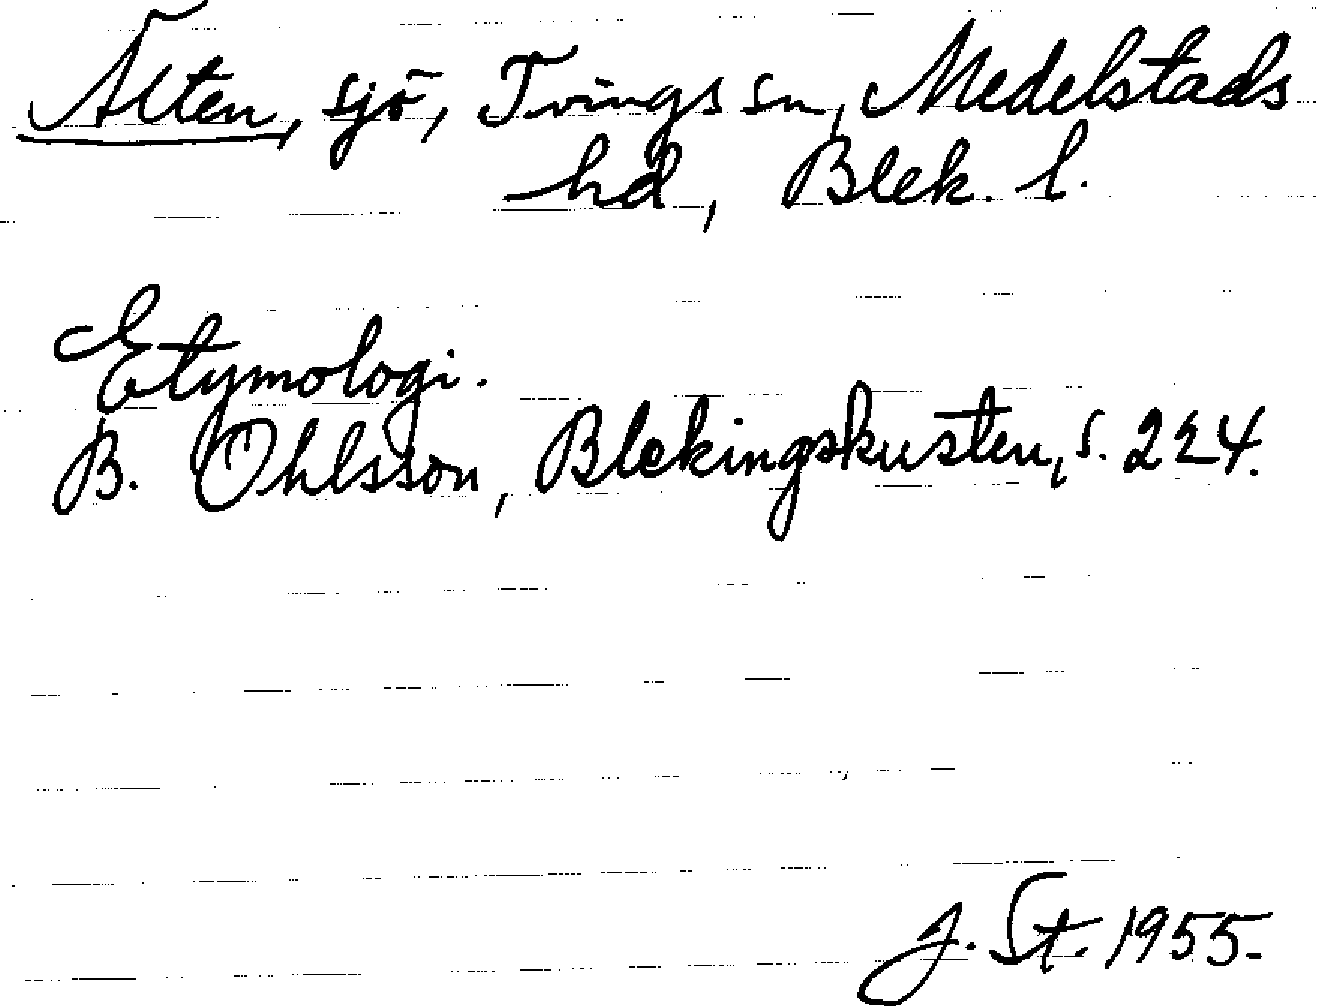 Älten, sjö, Tvings sn, Medelstads
hd, Blek. l.
Etymologi.
B. Ohlsson, Blekingskusten, s. 224.
J. St. 1955.